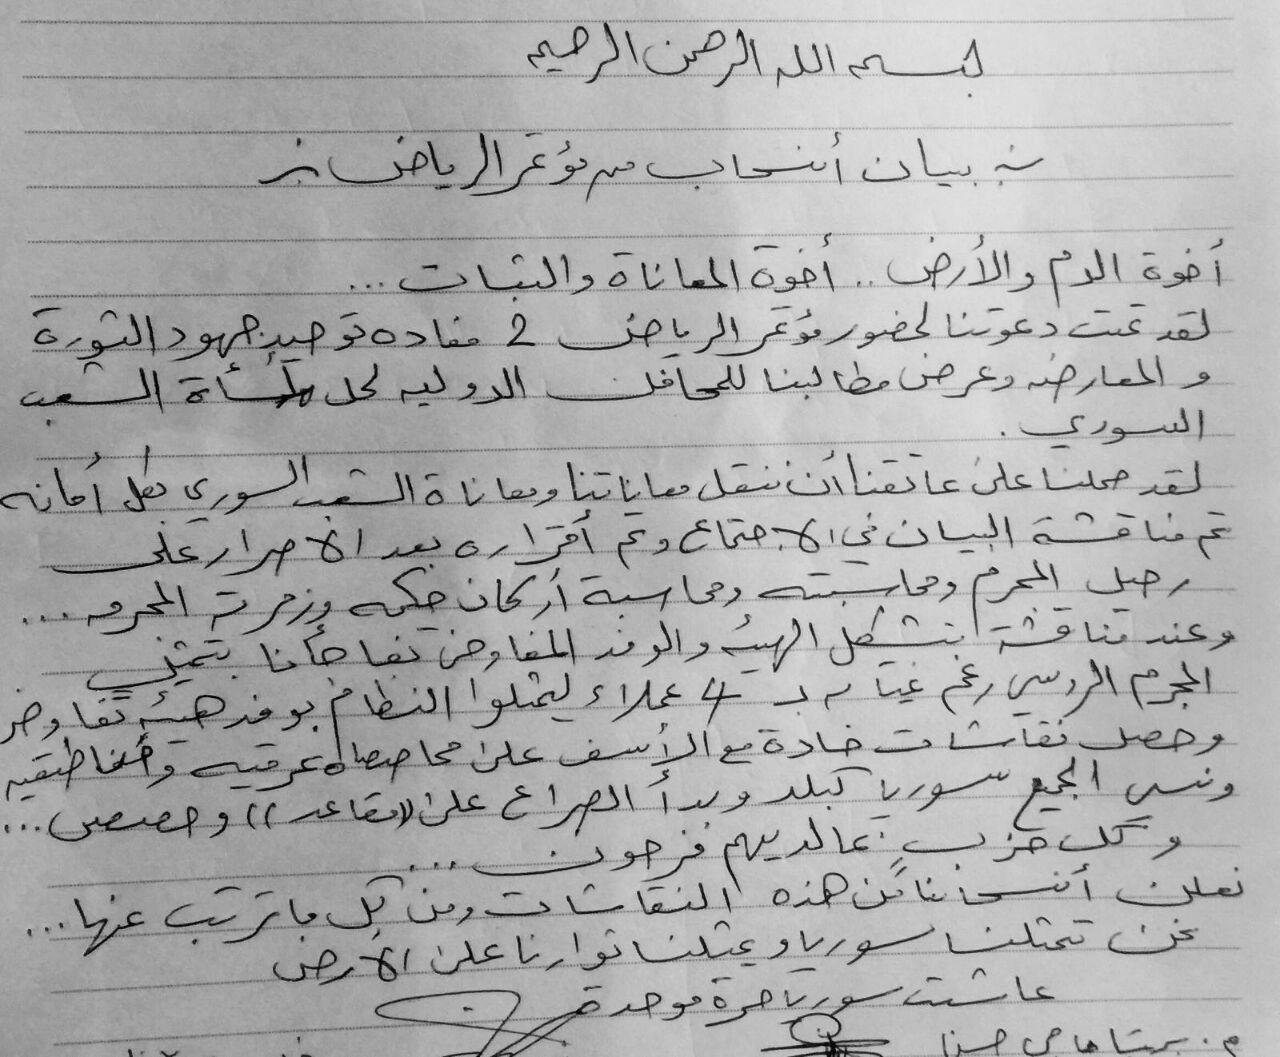 بسم الله الرحمن الرحيم
بيان أنسحاب من مؤتمر الرياض
أخوة الدم والأرض .. أخوة المعاناة والثبات ...
لقد تمت دعوتنا لحضور مؤتمر الرياض 2 مفاده توحيد جهود الثورة
و المعارضه وعرض مطالبنا للمحافل الدوليه لحل مأساة الشعب
السوري .
لقد حملنا على عاتقنا أن ننقل معاناتنا ومعاناة الشعب السوري بكل أمانه
تم مناقشة البيان في الاجتماع وتم أقراره بعد الاصرار على
رحيل المجرم ومحاسبته ومحاسبة أركان حكمه وزمرته المجرمه ...
وعند مناقشة تشكل الهيئه والوفد المفاوض تفاجأنا بتمثيل
المجرم الروسي رغم غيابه بـ 4 عملاء ليمثلوا النظام بوفد هيئه تفاوض
وحصل نقاشات حادة مع الأسف على محاصصه عرقيه ومناطقيه
ونسي الجميع سوريا كبلد وبدأ الصراع على ((مقاعد)) وحصص ...
و كل حزب بما لديهم فرحون ....
نعلن أنسحابنا من هذه النقاشات ومن كل ما ترتب عنها ...
نحن تمثلنا سوريا ويمثلنا ثوارنا على الأرض
عاشت سوريا حرة موحدة